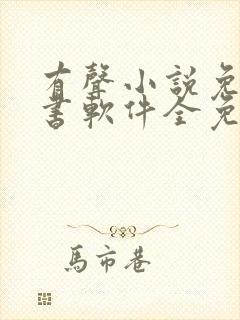 有聲小説免
書軟件全免
馬市巷